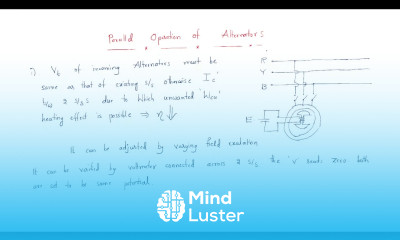 Parallel Operation of Alternators
i) Vt of incoming Alternators must be
same as that of existing s/s otherwise Ic
due to which unwanted
heating effect is possible ⇒ η ↓
It can be adjusted by varying field excitation
It can be verified by voltmeter connected across s/s the 'v' reads zero both
are at to be same potential
R
Y
B
E
Mind
Luster